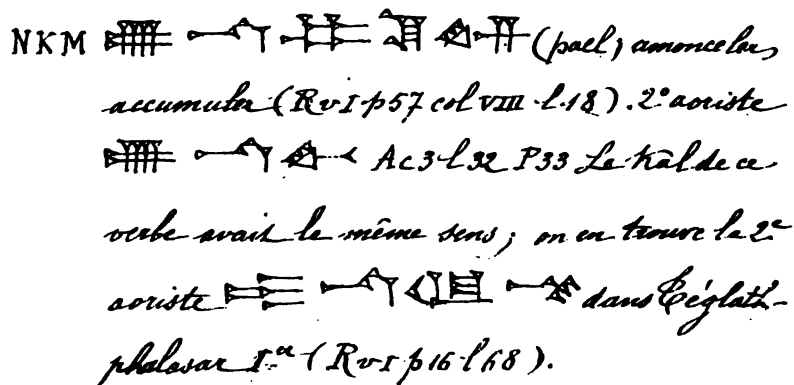 NKM (pael) amonceler,
accumuler (R v I p 57 col VIII l. 18). 2° aoriste
Ac 3 l 32 P 33 Le kal de ce
verbe avait le même sens; on en trouve le 2e
aoriste dans Téglath-
phalasar Ier (R v I p 16 l 68).